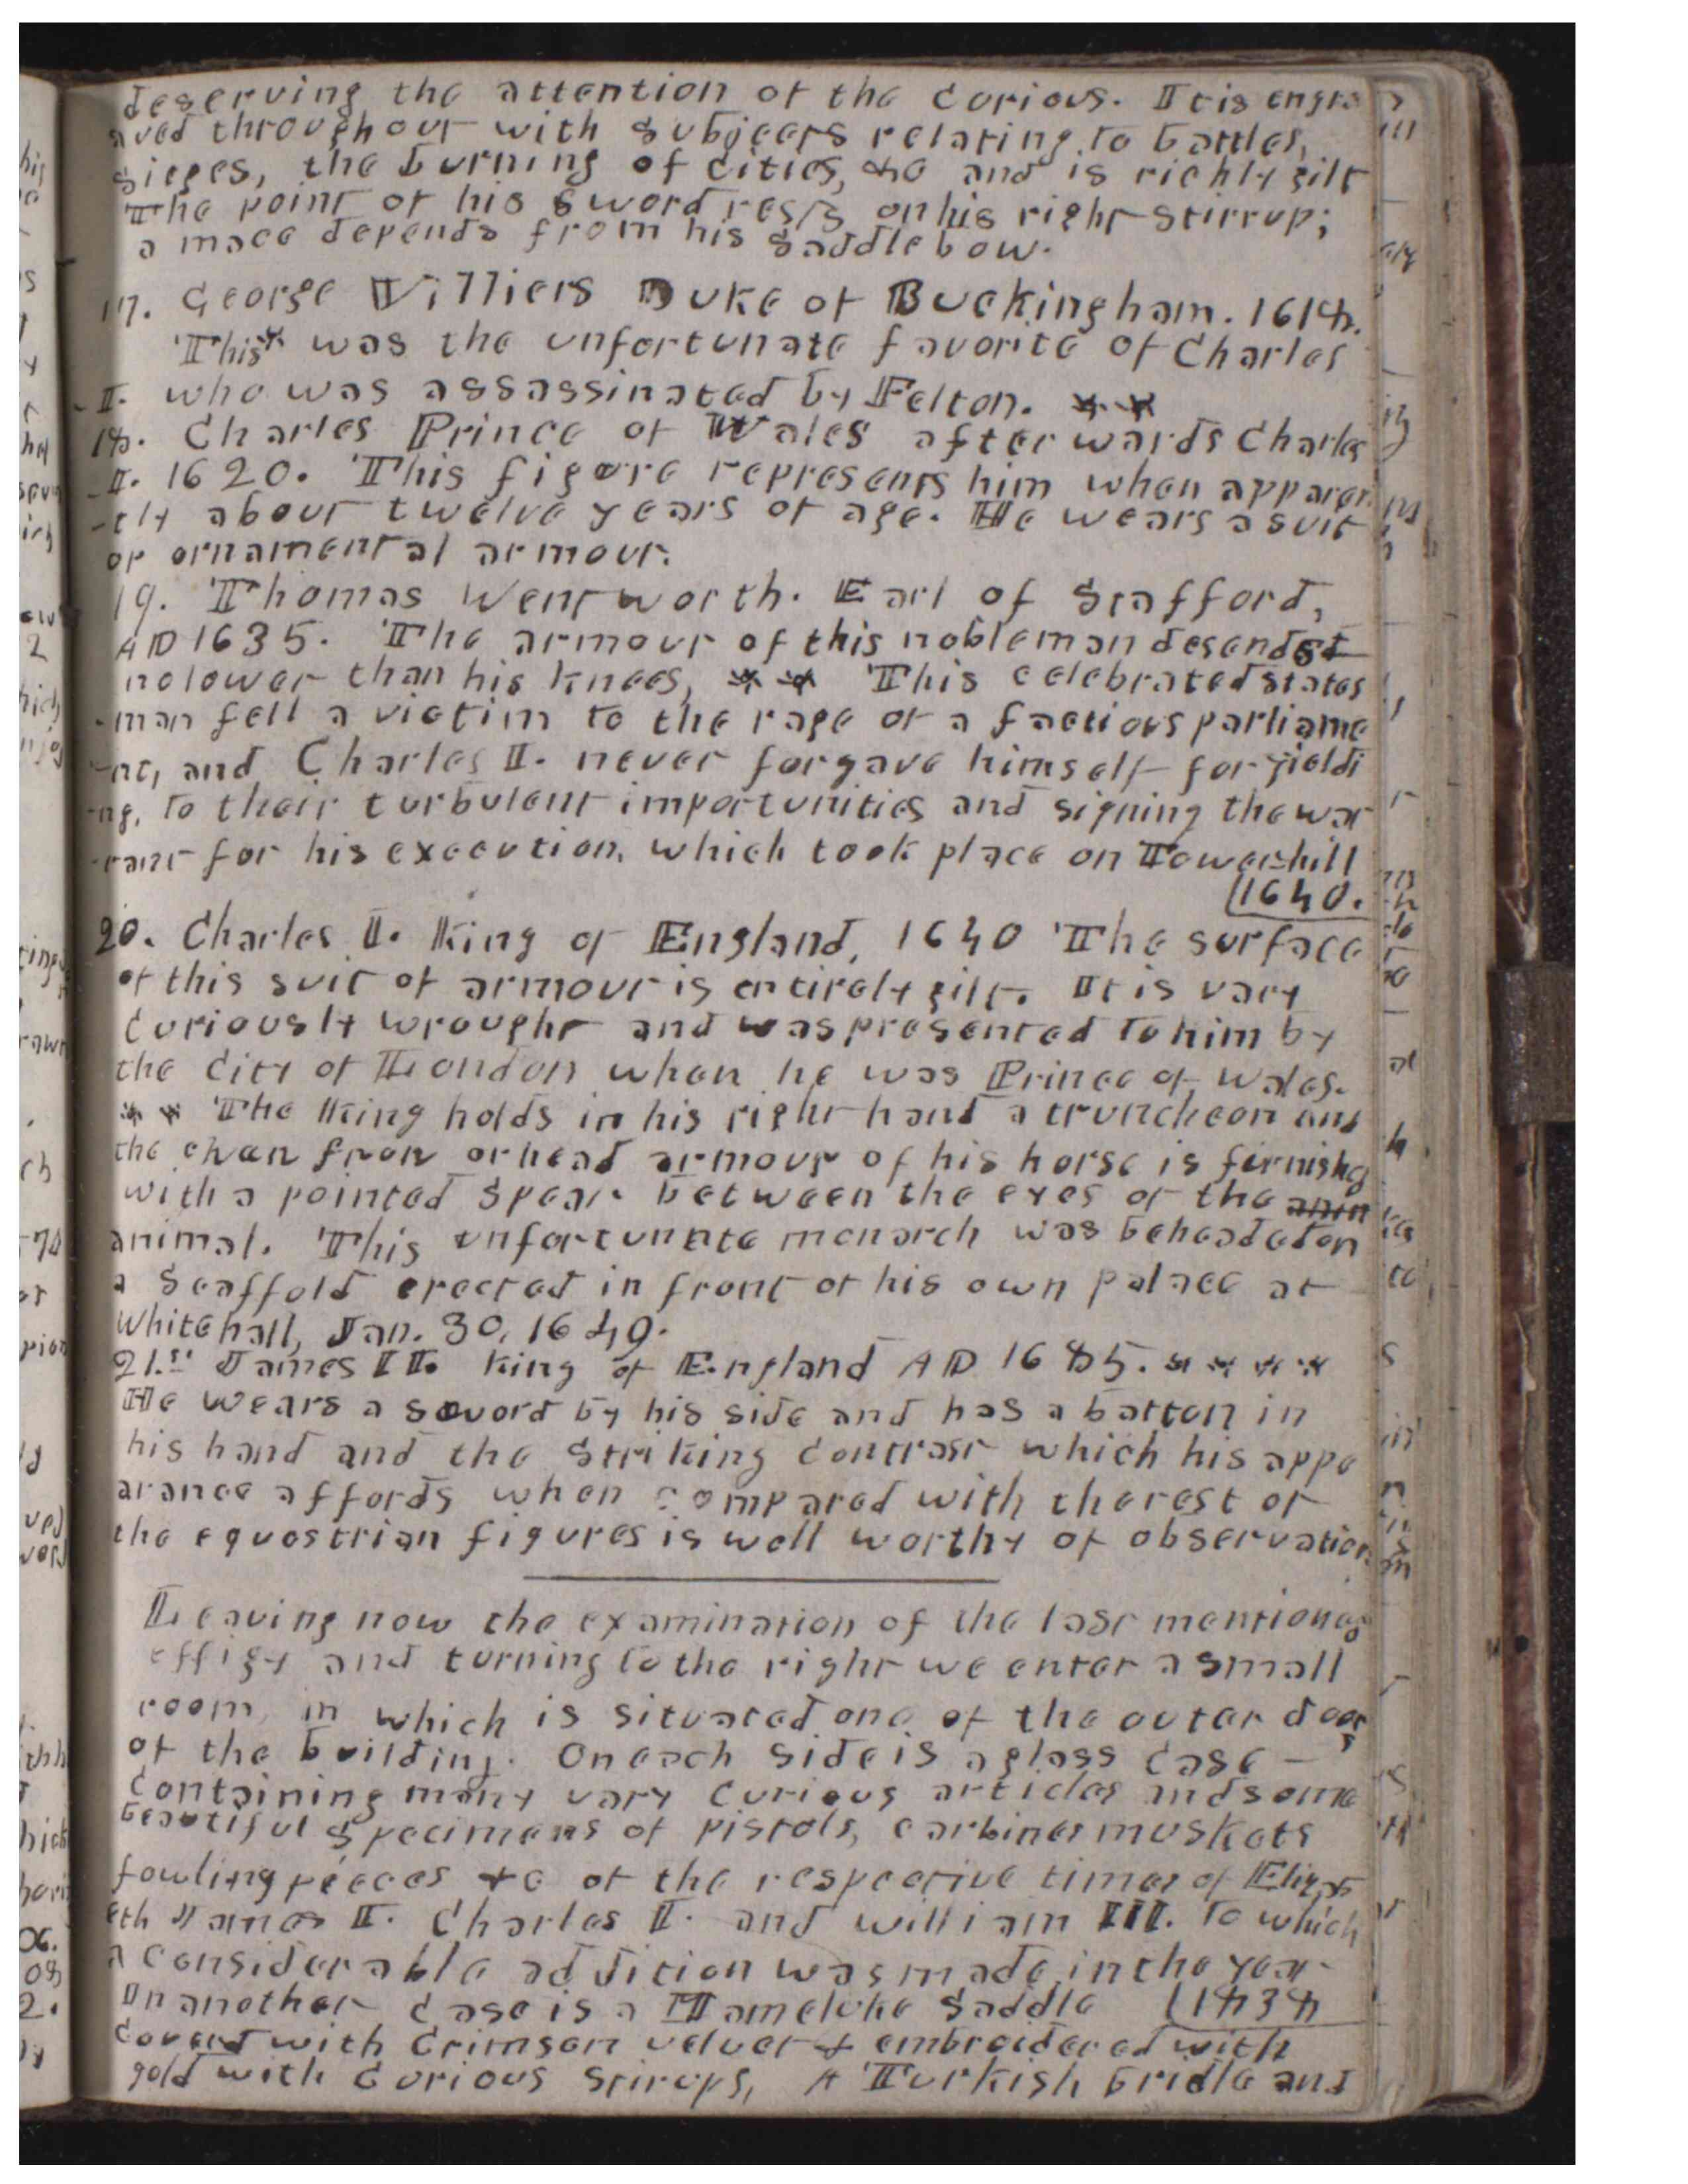 deserving the attention of the curious. It is engra
aved throughout with subjects relating to battles,
sieges, the burning of cities, &c and is richly gilt
The point of his sword rests on his right stirrup;
a mace depends from his saddle bow.
17. George Villiers Duke of Buckingham. 1618.
This* was the unfortunate favorite of Charles
I. who was assassinated by Felton. * *
18. Charles Prince of Wales afterwards Charles
I. 1620. This figure represents him when apparen
-tly about twelve years of age. He wears a suit
of ornamental armour.
19. Thomas Wentworth. Earl of Stafford,
AD 1635. The armour of this nobleman desends
no lower than his knees, * * This celebrated states
-man fell a victim to the rage of a factious parliame
-nt, and Charles I. never forgave himself for yieldi
-ng, to their turbulent importunities and signing the war
-rant for his execution, which took place on Tower-hill
1640.
20. Charles I. King of England, 1640 The surface
of this suit of armour is entirely gilt. It is very
curiously wrought and was presented to him by
the City of London when he was Prince of Wales.
* * The King holds in his right hand a truncheon and
the chan fron or head armour of his horse is furnished
with a pointed spear between the eyes of the anim
animal. This unfortunate monarch was beheaded on
a Scaffold erected in front of his own palace at
Whitehall, Jan. 30, 1649.
21. James II. King of England AD 1685. * * * *
He wears a sword by his side and has a batton in
his hand and the striking contrast which his appe
arance affords when compared with the rest of
the equestrian figures is well worthy of observation
Leaving now the examination of the last mentioned
effigy and turning to the right we enter a small
room, in which is situated one of the outer doors
of the building. On each side is a glass case -
containing many very curious articles and some
beautiful specimens of pistols, carbines muskets
fowling pieces &c of the respective times of Elizab
eth James I. Charles I. and william III. to which
a considerable addition was made in the year
In another case is a Mameluke Saddle 1838
covered with crimson velvet & embroidered with
gold with curious stirups, A Turkish bridle and